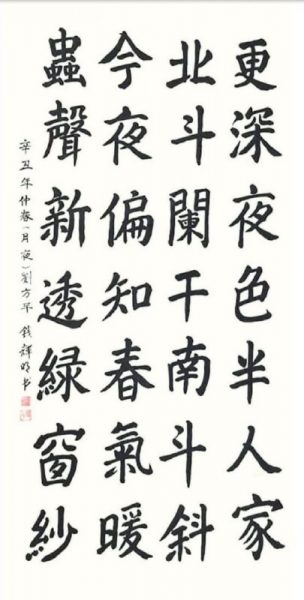 更深夜色半人家
北斗闌干南斗斜
今夜偏知春氣暖
蟲聲新透綠窗紗
辛丑年仲春（月夜）劉方平 錢輝明书